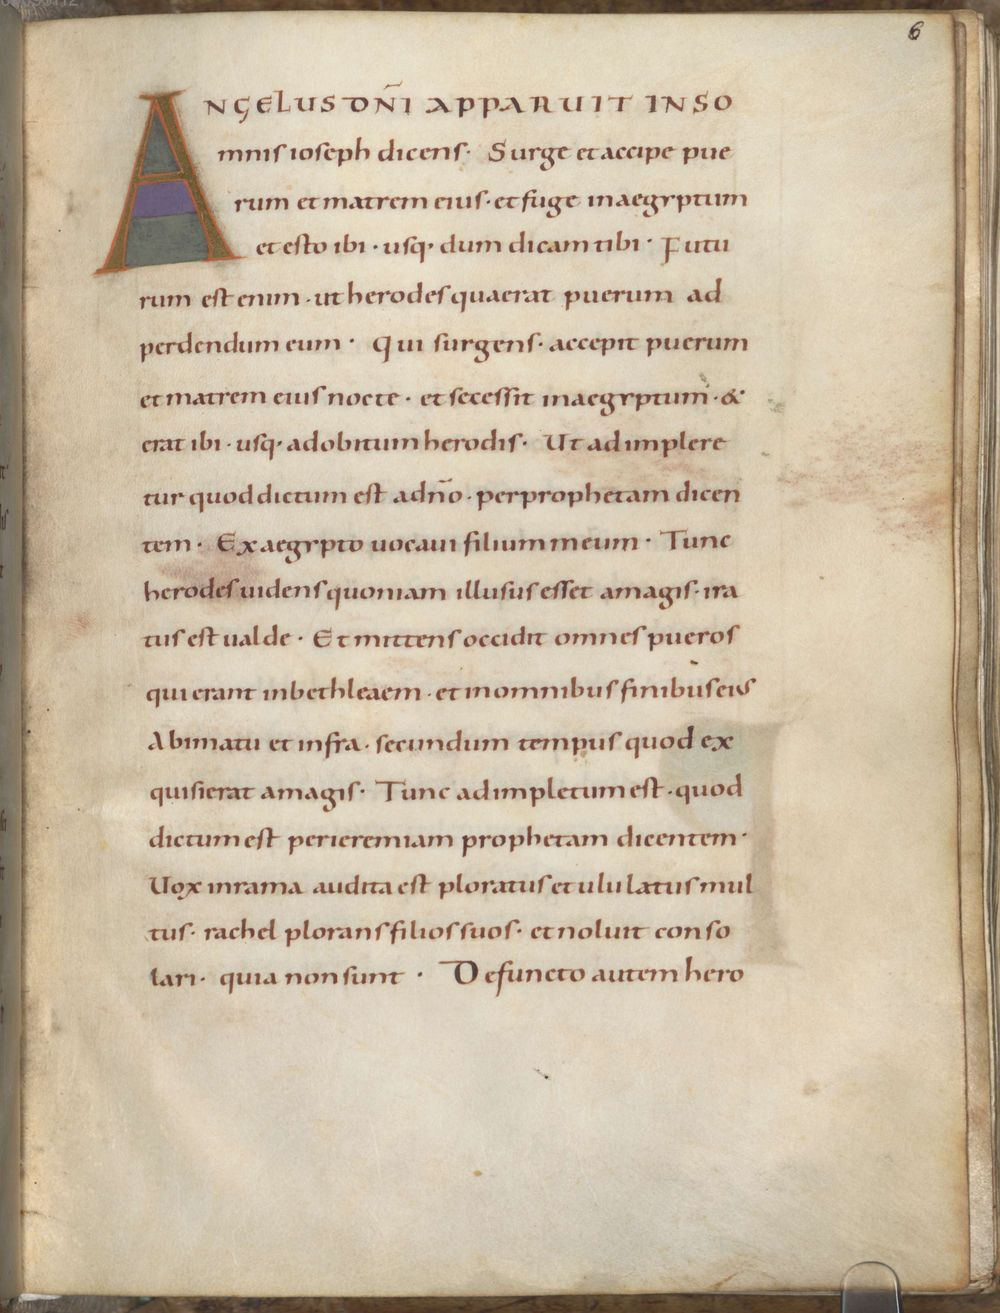 6
ANGELUS DÑI APPARUIT INSO
mnis ioseph dicens· Surge et accipe pue
rum et matrem eius· et fuge inaegyptum
et esto ibi · usq· dum dicam tibi · Futu
rum est enim · ut herodes quaerat puerum ad
perdendum eum · Qui surgens· accepit puerum
et matrem eius nocte · et secessit inaegyptum · &
erat ibi · usq· ad obitum herodis· Ut ad implere
tur quod dictum est a dño · per prophetam dicen
tem · Ex aegypto uocaui filium meum · Tunc
herodes uidens quoniam illusus esset amagis· ira
tus est ualde · Et mittens occidit omnes pueros
qui erant inbethleaem · et inomnibus finibus eius
Abimatu et infra· secundum tempus quod ex
quisierat amagis· Tunc adimpletum est · quod
dictum est per ieremiam prophetam dicentem·
Uox inrama audita est ploratus et ululatus mul
tus· rachel plorans filios suos· et noluit conso
lari· quia non sunt · Defuncto autem hero